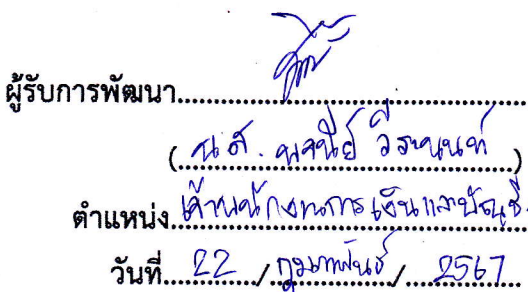 ผู้รับการพัฒนา
(น.ส. พจนีย์ วีระนนท์)
ตำแหน่ง เจ้าพนักงานการเงินและบัญชี
วันที่ 22 / กุมภาพันธ์ / 2567